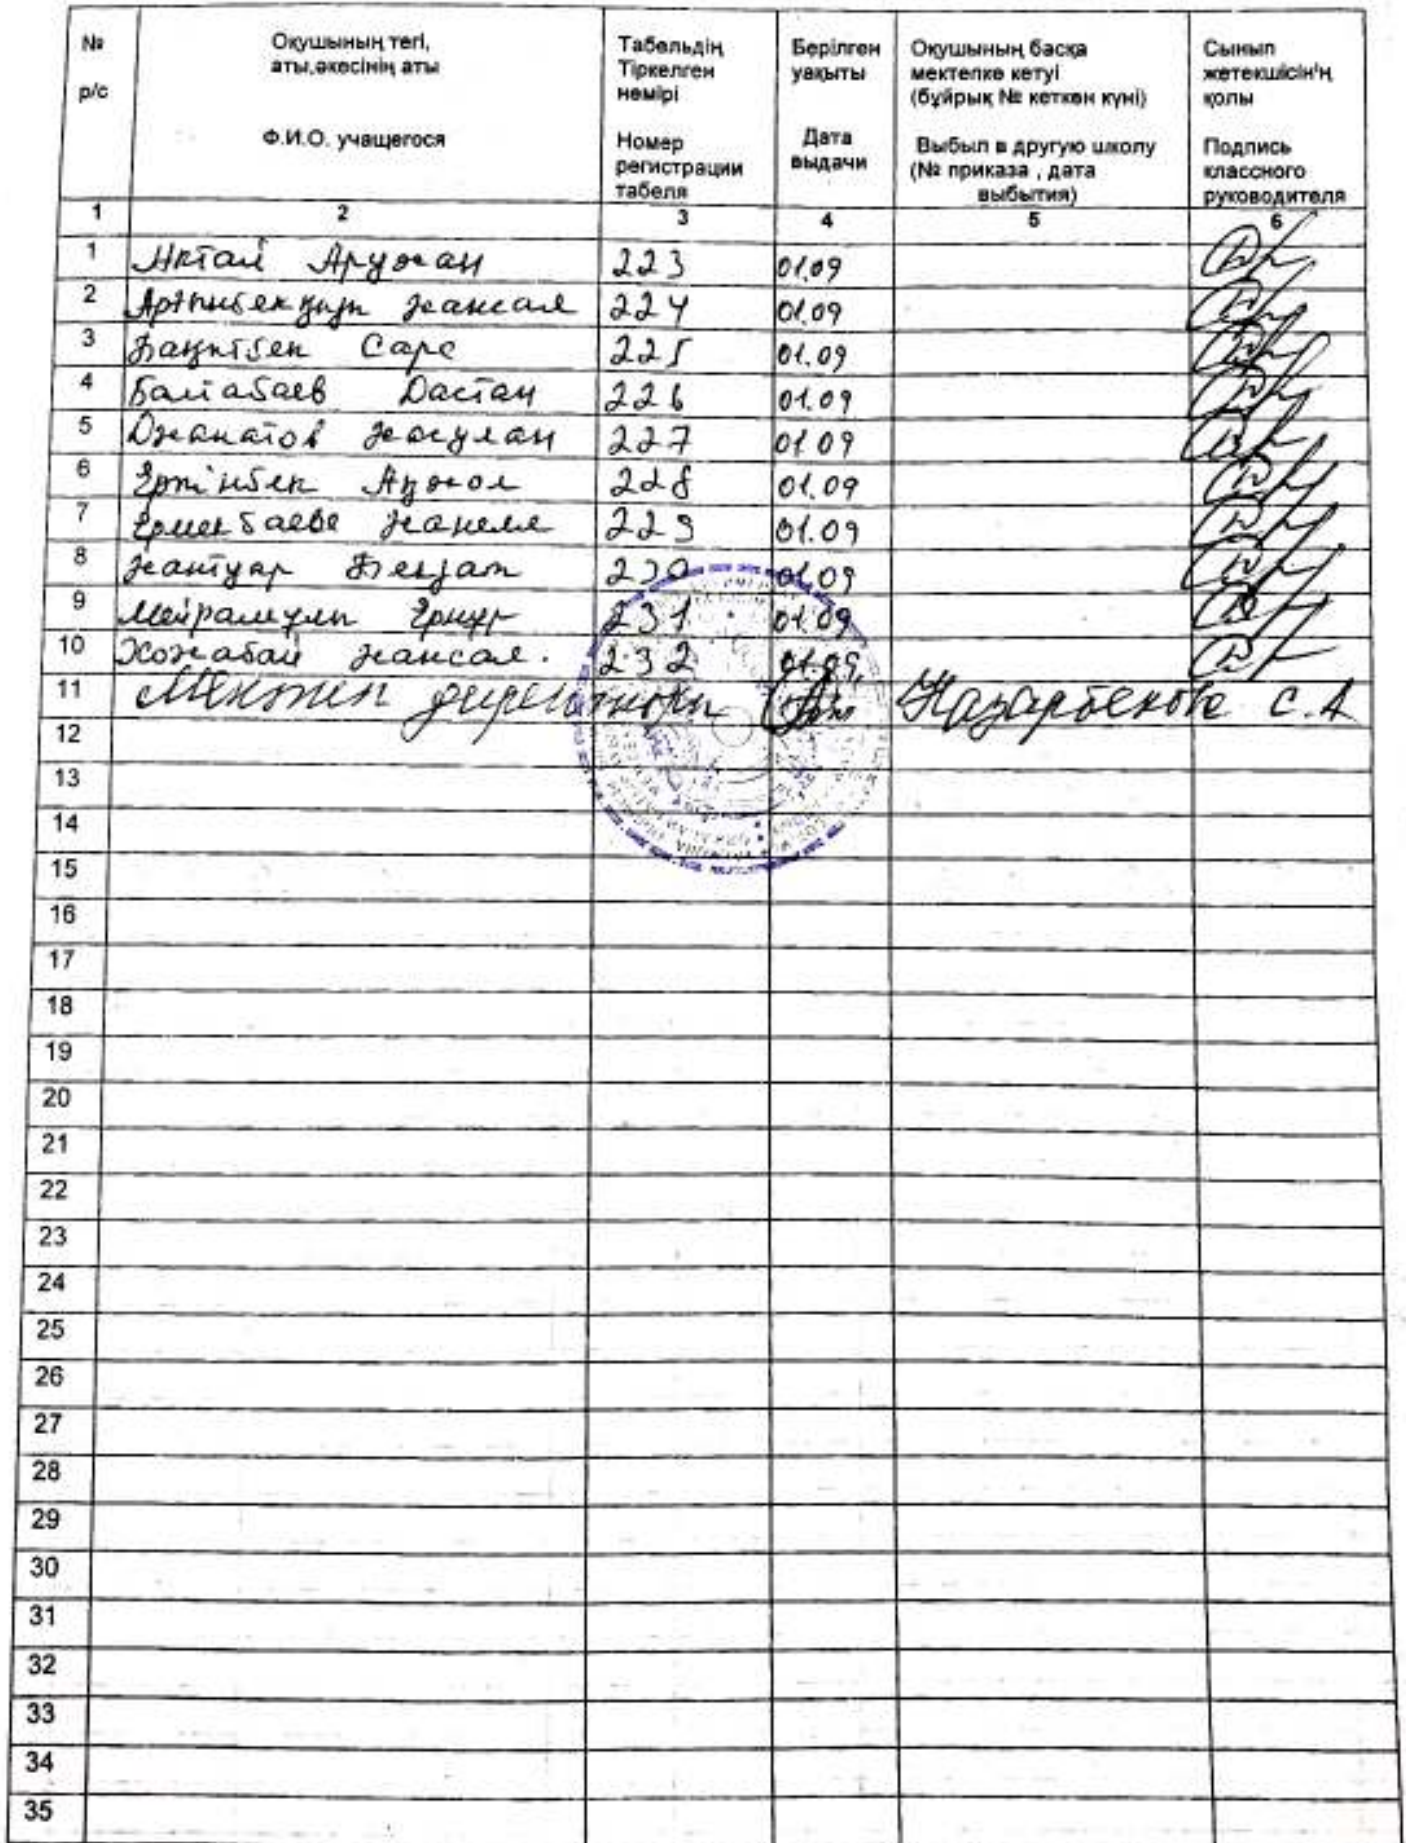 № р/с
Оқушының тегі, аты,әкесінің аты
Ф.И.О. учащегося
Табельдің Тіркелген немірі
Номер регистрации табеля
Берілген уақыты
Дата выдачи
Оқушының басқа мектепке кетуі (бұйрық № кеткен күні)
Выбыл в другую школу (№ приказа , дата выбытия)
Сынып жетекшісін'ң қолы
Подпись классного руководителя
1 2 3 4 5 6
1 Актай Аружан 223 01.09
2 Артынбекқызы Жансая 224 01.09
3 Бақытбек Сара 225 01.09
4 Балтабаев Дастан 226 01.09
5 Джанатов Жасулан 227 01.09
6 Еркінбек Ақжол 228 01.09
7 Ермекбаева Жанеля 229 01.09
8 Жантуар Бекзат 230 01.09
9 Мейрамұлы Ернұр 231 01.09
10 Хожабай Жансая. 232 01.09
11 Мектеп директоры Назарбекова С.А
12
13
14
15
16
17
18
19
20
21
22
23
24
25
26
27
28
29
30
31
32
33
34
35